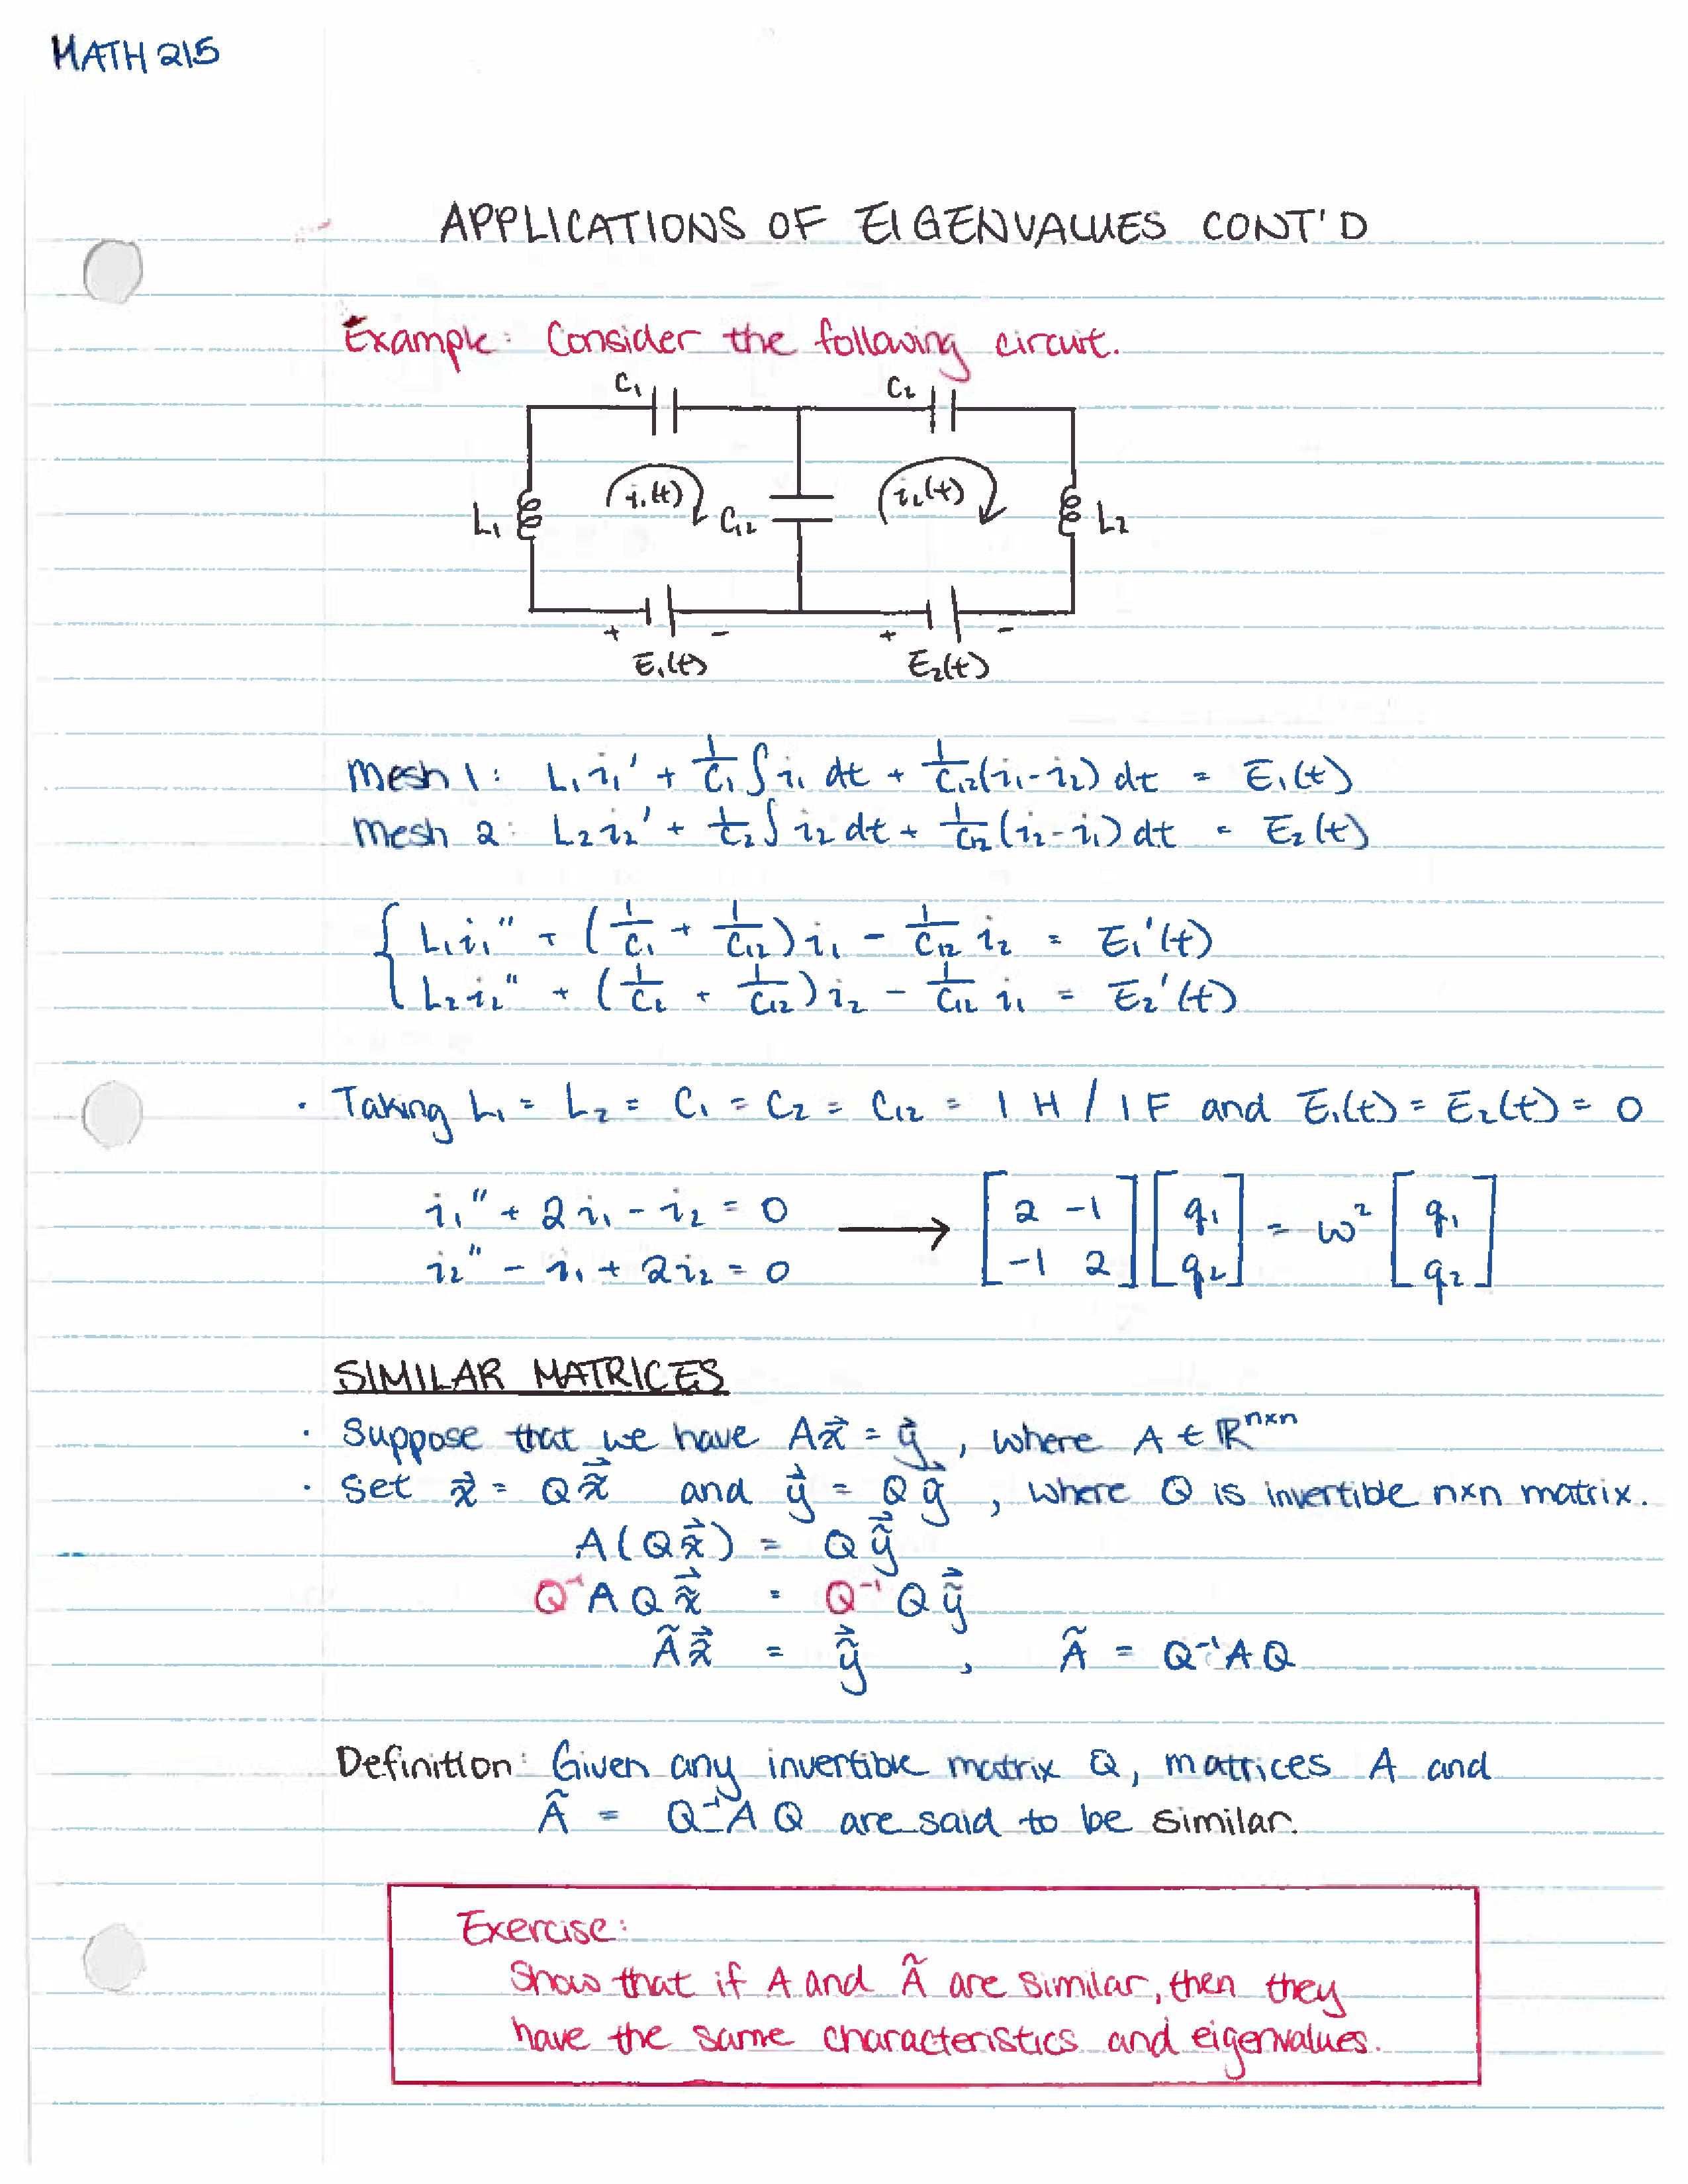 MATH 215
APPLICATIONS OF EIGENVALUES CONT'D
Example: Consider the following circuit.
C₁ C₂
L₁ i₁(t) C₁₂ i₂(t) L₂
+ - + -
E₁(t) E₂(t)
Mesh 1: L₁i₁' + 1/C₁ ∫ i₁ dt + 1/C₁₂(i₁-i₂) dt = E₁(t)
Mesh 2: L₂i₂' + 1/C₂ ∫ i₂ dt + 1/C₁₂ (i₂-i₁) dt = E₂(t)
{ L₁i₁" + (1/C₁ + 1/C₁₂) i₁ - 1/C₁₂ i₂ = E₁'(t)
L₂i₂" + (1/C₂ + 1/C₁₂) i₂ - 1/C₁₂ i₁ = E₂'(t)
· Taking L₁ = L₂ = C₁ = C₂ = C₁₂ = 1 H / 1 F and E₁(t) = E₂(t) = 0
i₁" + 2i₁ - i₂ = 0 → [2 -1] [q₁] = ω² [q₁]
i₂" - i₁ + 2i₂ = 0 [-1 2] [q₂] [q₂]
SIMILAR MATRICES
· Suppose that we have Ax⃗ = y⃗, where A ∈ ℝⁿˣⁿ
· Set x⃗ = Qx̃⃗ and y⃗ = Qỹ⃗, where Q is invertible nxn matrix.
A(Qx̃⃗) = Qỹ⃗
Q⁻¹AQx̃⃗ = Q⁻¹Qỹ⃗
Ãx̃⃗ = ỹ⃗, Ã = Q⁻¹AQ
Definition: Given any invertible matrix Q, matrices A and
Ã = Q⁻¹AQ are said to be similar.
Exercise:
Show that if A and Ã are similar, then they
have the same characteristics and eigenvalues.